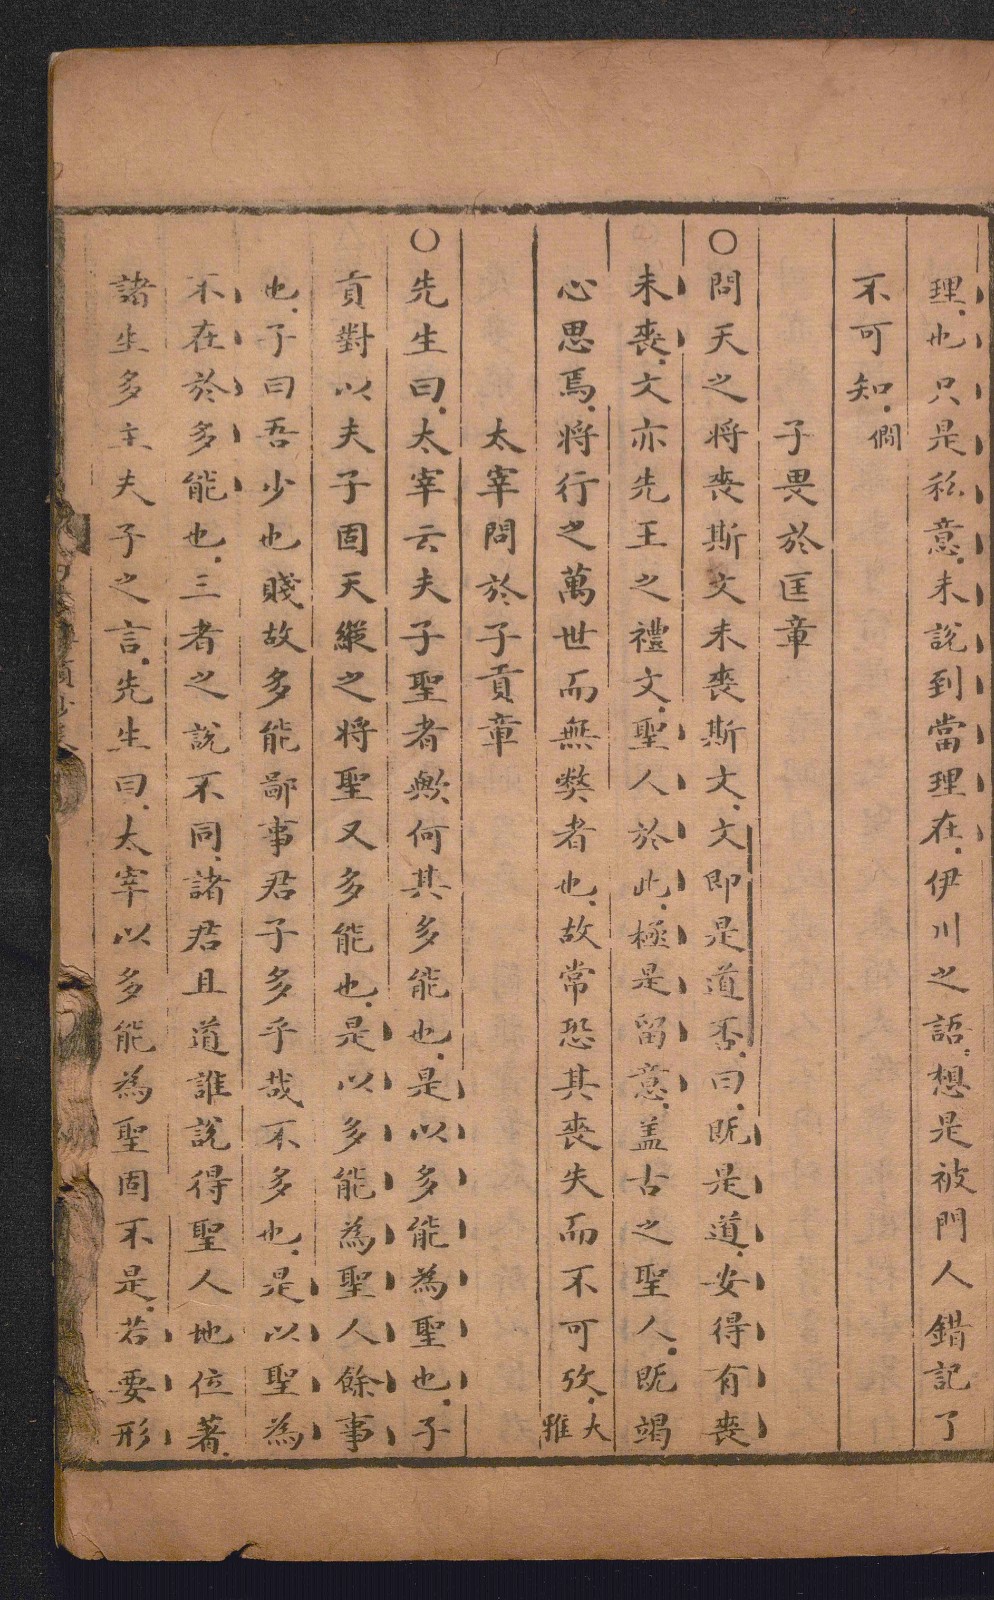 理也只是私意未說到當理在伊川之語想是被門人錯記了
不可知僩
子畏於匡章
○問天之將喪斯文未喪斯文文即是道否曰既是道安得有喪
未喪文亦先王之禮文聖人於此極是留意蓋古之聖人既竭
心思焉將行之萬世而無獘者也故常恐其喪失而不可攷大雅
太宰問於子貢章
○先生曰太宰云夫子聖者歟何其多能也是以多能為聖也子
貢對以夫子固天縱之將聖又多能也是以多能為聖人餘事
也子曰吾少也賤故多能鄙事君子多乎哉不多也是以聖為
不在於多能也三者之說不同諸君且道誰說得聖人地位著
諸生多主夫子之言先生曰太宰以多能為聖固不是若要形